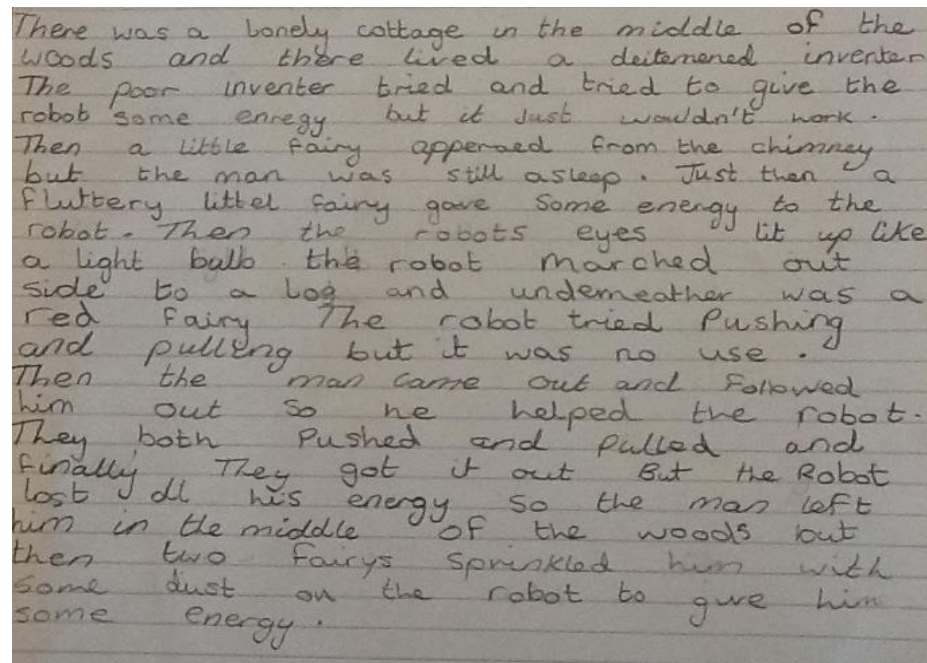 There was a lonely cottage in the middle of the
woods and there lived a deitemened inventer
The poor inventer tried and tried to give the
robot some enregy but it Just wouldn't work.
Then a little fairy apperaed from the chimney
but the man was still asleep. Just then a
fluttery littel fairy gave some energy to the
robot. Then the robots eyes lit up like
a light bulb the robot marched out
side to a log and underneather was a
red fairy The robot tried Pushing
and pulling but it was no use.
Then the man came out and followed
him out so he helped the robot.
They both Pushed and pulled and
finally They got it out But the Robot
lost all his energy so the man left
him in the middle of the woods but
then two fairys sprinkled him with
some dust on the robot to give him
some energy.